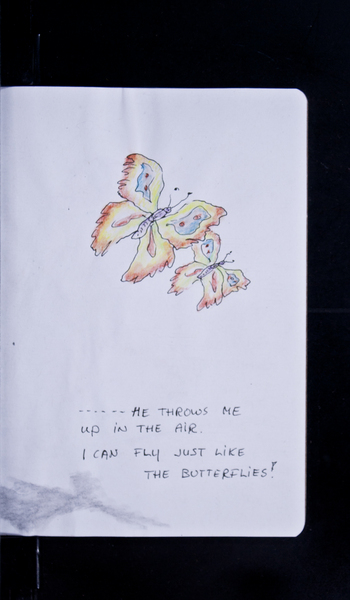 ------ HE THROWS ME
UP IN THE AIR.
I CAN FLY JUST LIKE
THE BUTTERFLIES!